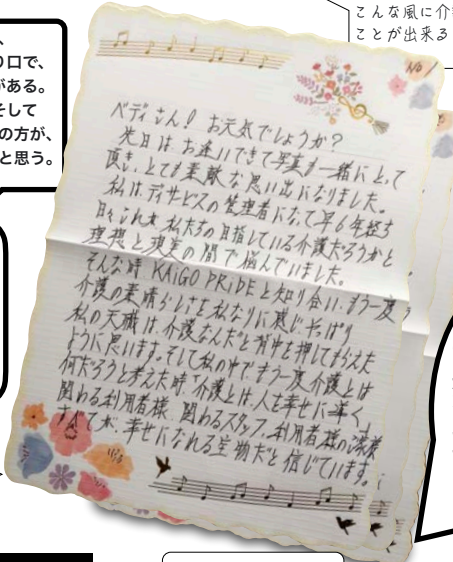 こんな風に介
ことが出来る
り口で、
がある。
そして
の方が、
と思う。
No 1
ベディさん! お元気でしょうか?
先日は お逢いできて写真も一緒にとって
頂き、とても素敵な思い出になりました。
私はデイサービスの管理者になって早6年経ち
日々これが 私たちの目指している介護だろうかと
理想と現実の間で悩んでいました。
そんな時 KAiGO PRiDEと知り合い、もう一度
介護の素晴らしさを私なりに感じ、やっぱり
私の天職は、介護なんだと背中を押してもらえた
ように思います。そして私の中でもう一度介護とは
何だろうと考えた時「介護とは、人を幸せに導く」
関わる利用者様、関わるスタッフ、利用者様のご家族
すべてが、幸せになれる宝物だと信じています。